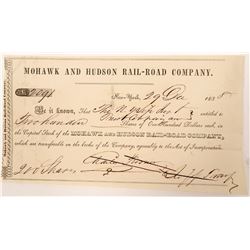 MOHAWK AND HUDSON RAIL-ROAD COMPANY.
New-York, 29 Dec 1838
Be it known, That The N. York Life &
Trust Company are entitled to
Two hundred Shares of One Hundred Dollars each, in
the Capital Stock of the MOHAWK AND HUDSON RAIL-ROAD COMPANY,
which are transferable on the books of the Company, agreeably to the Act of Incorporation.
200 Shares